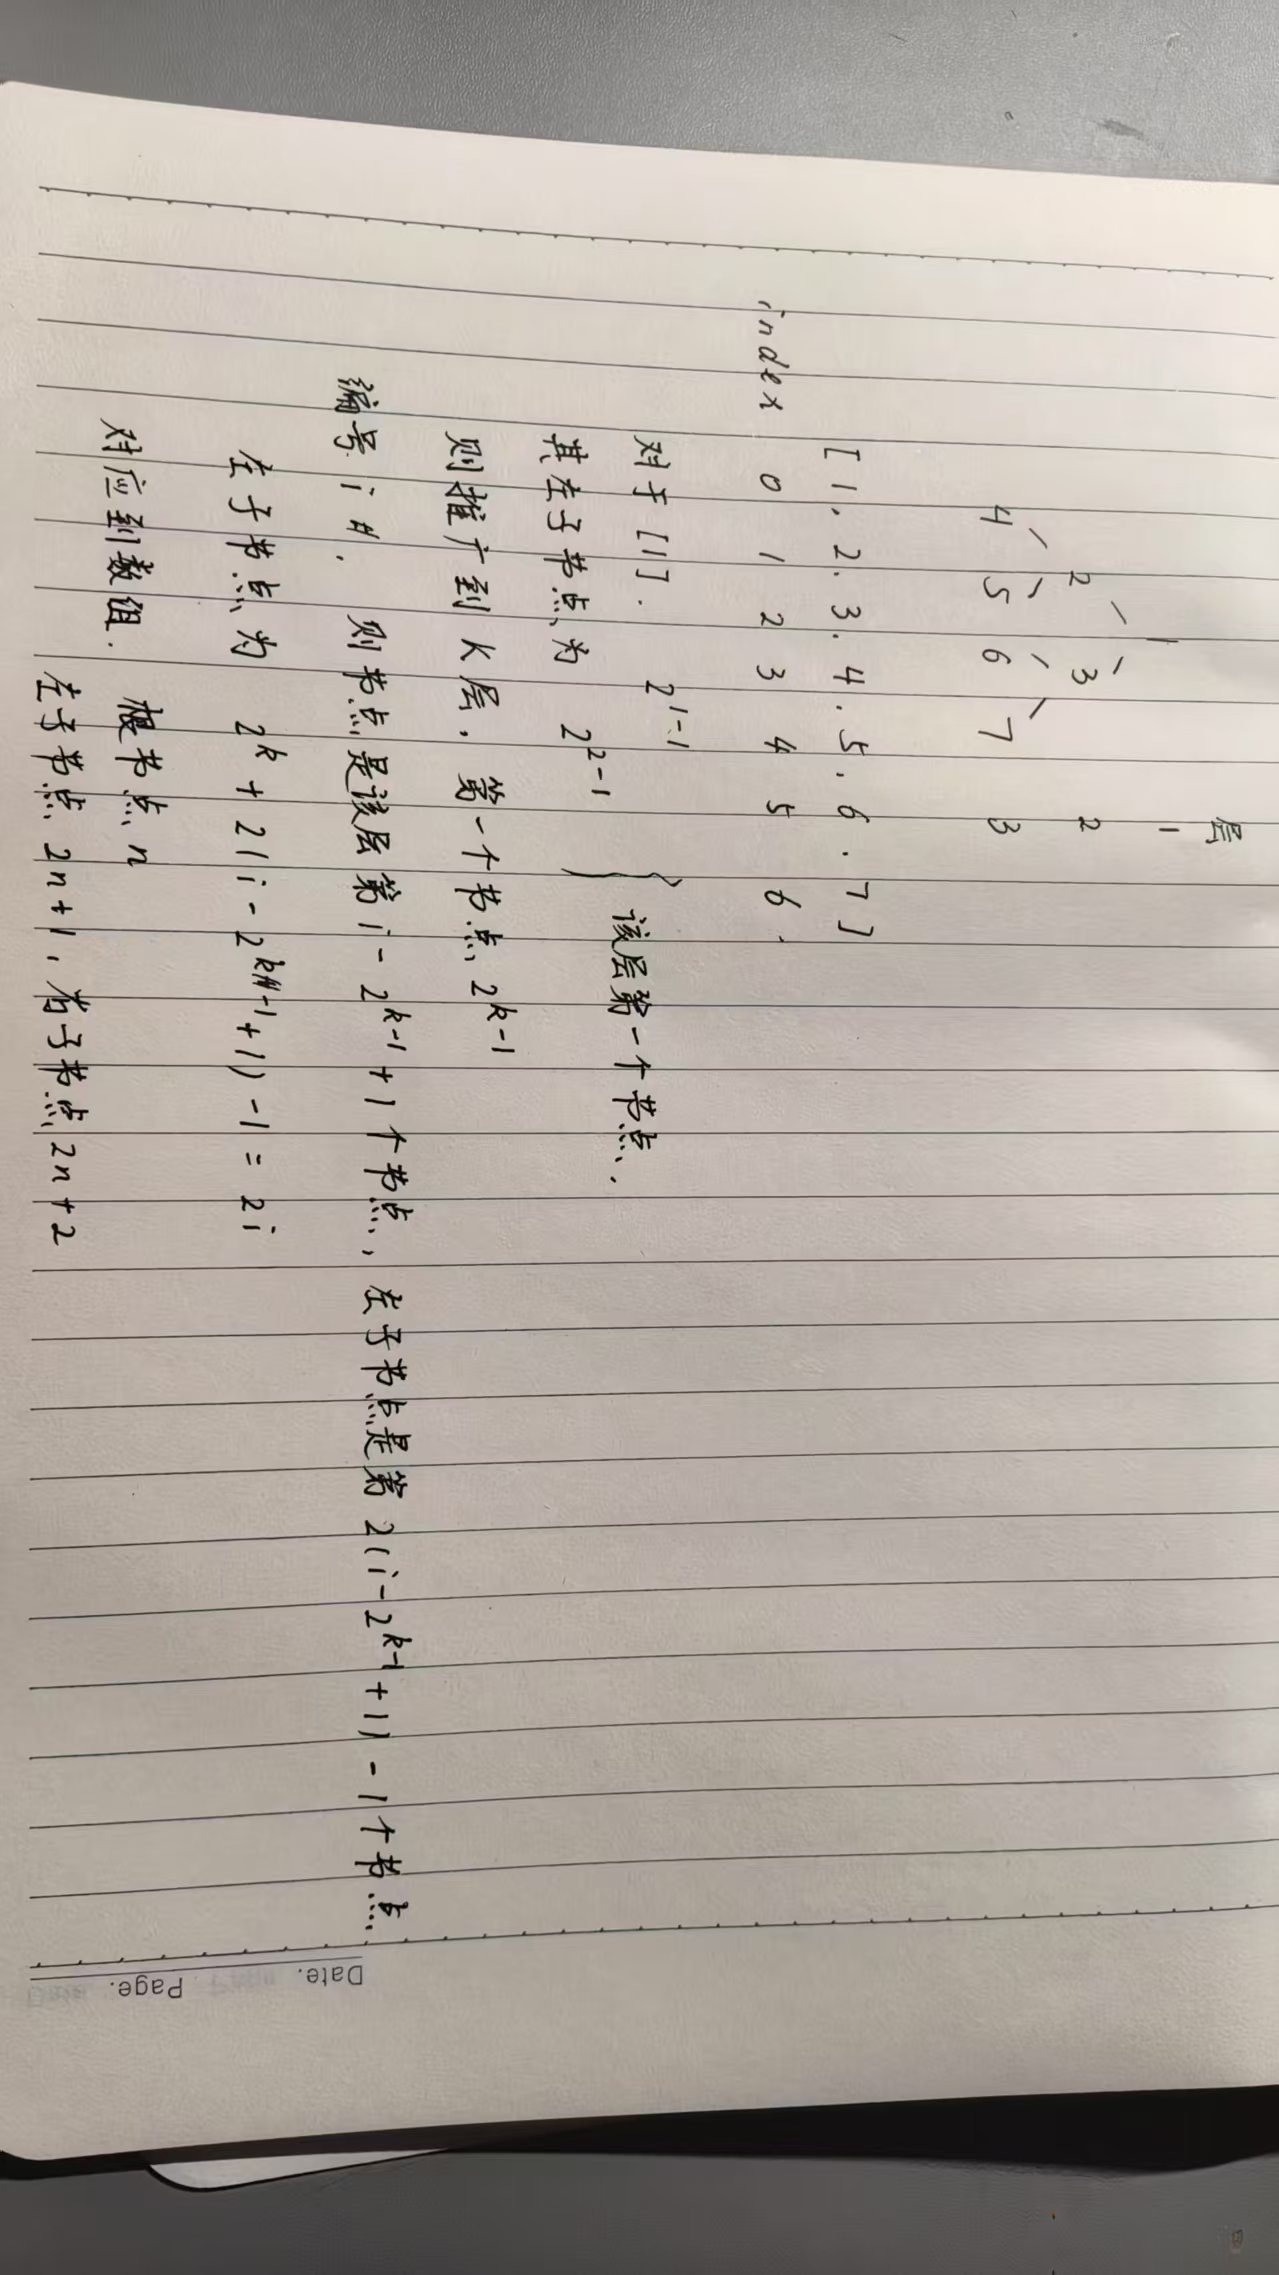 层
1 1
2 3 2
4 5 6 7 3
[1. 2. 3. 4. 5. 6. 7]
index 0 1 2 3 4 5 6.
对于[1]. 2^{1-1}
其左子节点为 2^{2-1} } 该层第一个节点.
则推广到K层, 第一个节点 2^{k-1}
编号 i 则节点是该层第 i - 2^{k-1} + 1 个节点, 左子节点是第 2(i - 2^{k-1} + 1) - 1 个节点
左子节点为 2^k + 2(i - 2^{k-1} + 1) - 1 = 2i
对应到数组. 根节点 n
左子节点 2n+1, 右子节点 2n+2
Date.
Page.